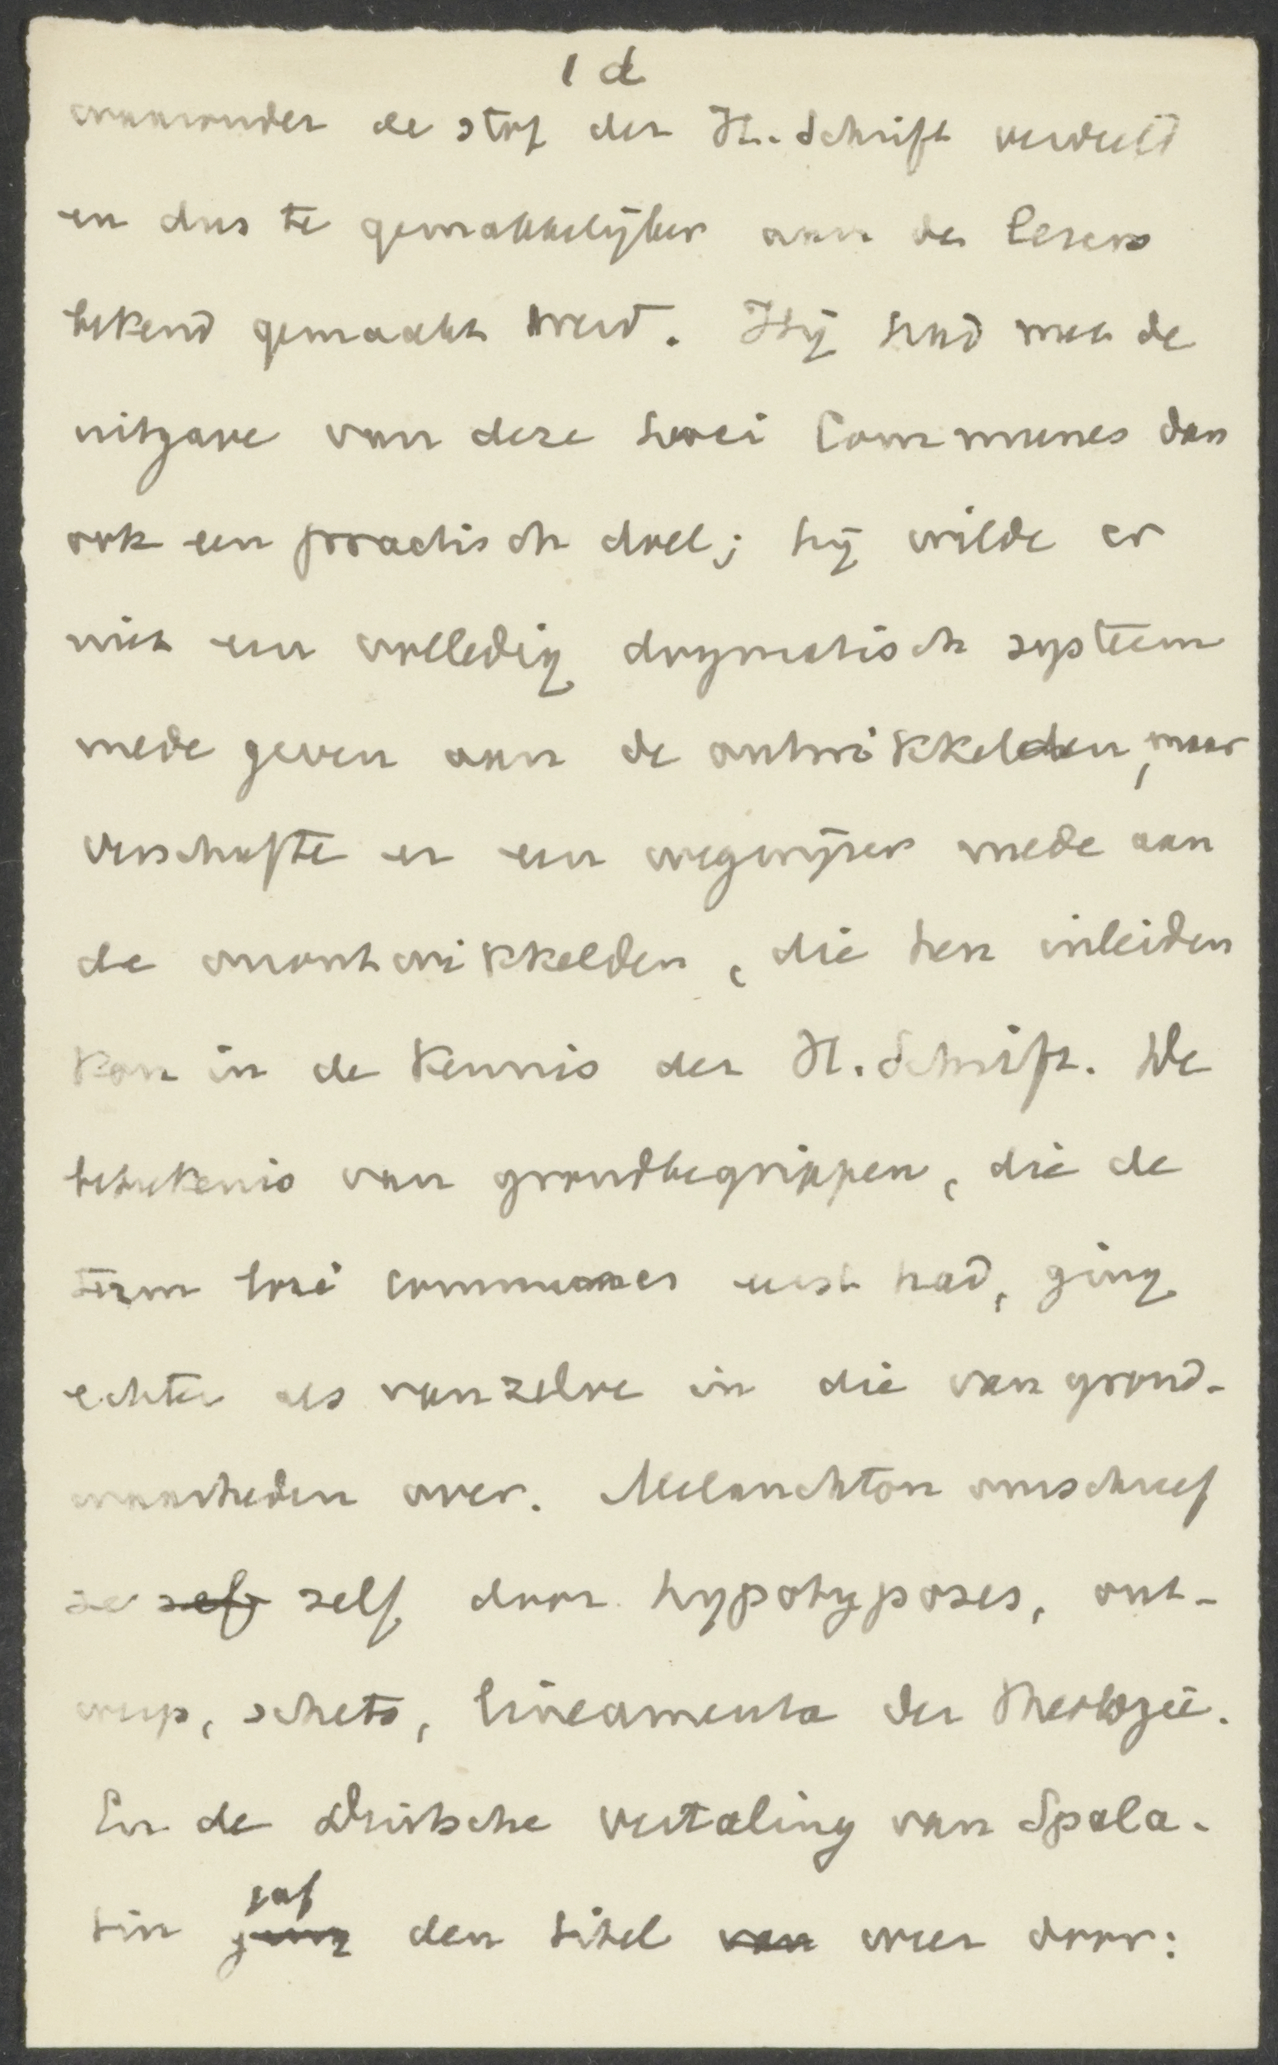 1 d
waaronder de stof der H. Schrift verdeeld
en dus te gemakkelijker aan de lezers
bekend gemaakt werd. Hij had met de
uitgave van deze Loci Communes dan
ook een practisch doel; hij wilde er
niet een volledig dogmatisch systeem
mede geven aan de ontwikkelden, maar
verschafte er een wegwijzer mede aan
de onontwikkelden, die hen inleiden
kon in de kennis der H. Schrift. De
beteekenis van grondbegrippen, die de
term loci communes eerst had, ging
echter als vanzelve in die van grond-
waarheden over. Melanchton omschreef
ze zelf zelf door hypotyposes, ont-
werp, schets, lineamenta der Theologie.
En de Duitsche vertaling van Spala-
tin ging gaf den titel van weer door: